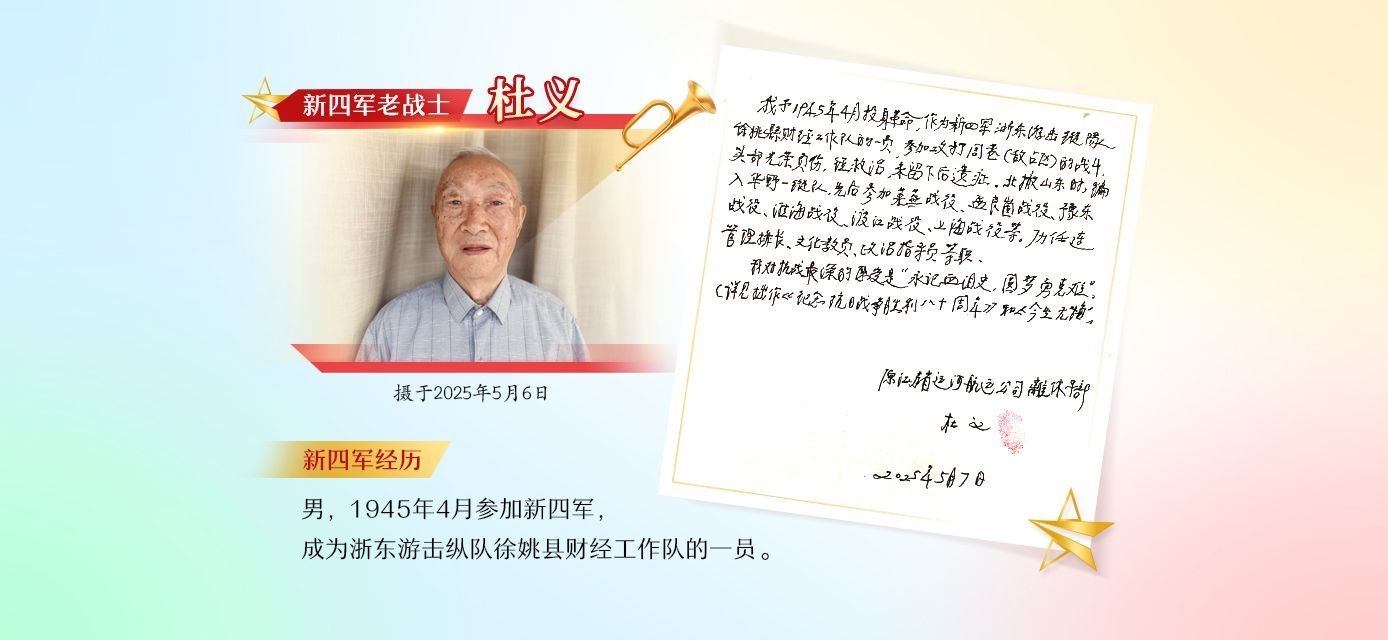 新四军老战士 杜义
摄于2025年5月6日
新四军经历
男，1945年4月参加新四军，
成为浙东游击纵队徐姚县财经工作队的一员。
我于1945年4月投身革命，作为新四军浙东游击纵队
徐姚县财经工作队的一员，参加攻打周巷（敌占区）的战斗，
头部光荣负伤，经救治，未留下后遗症。北撤山东时，编
入华野一纵队，先后参加莱芜战役、孟良崮战役、豫东
战役、淮海战役、渡江战役、上海战役等。历任连
管理排长、文化教员、政治指导员等职。
我对抗战最深的感受是“永记血泪史，圆梦勇克难”。
（详见拙作《纪念抗日战争胜利八十周年》和《今生无悔》
原江苏省运河航运公司离休干部
杜义
2025年5月7日